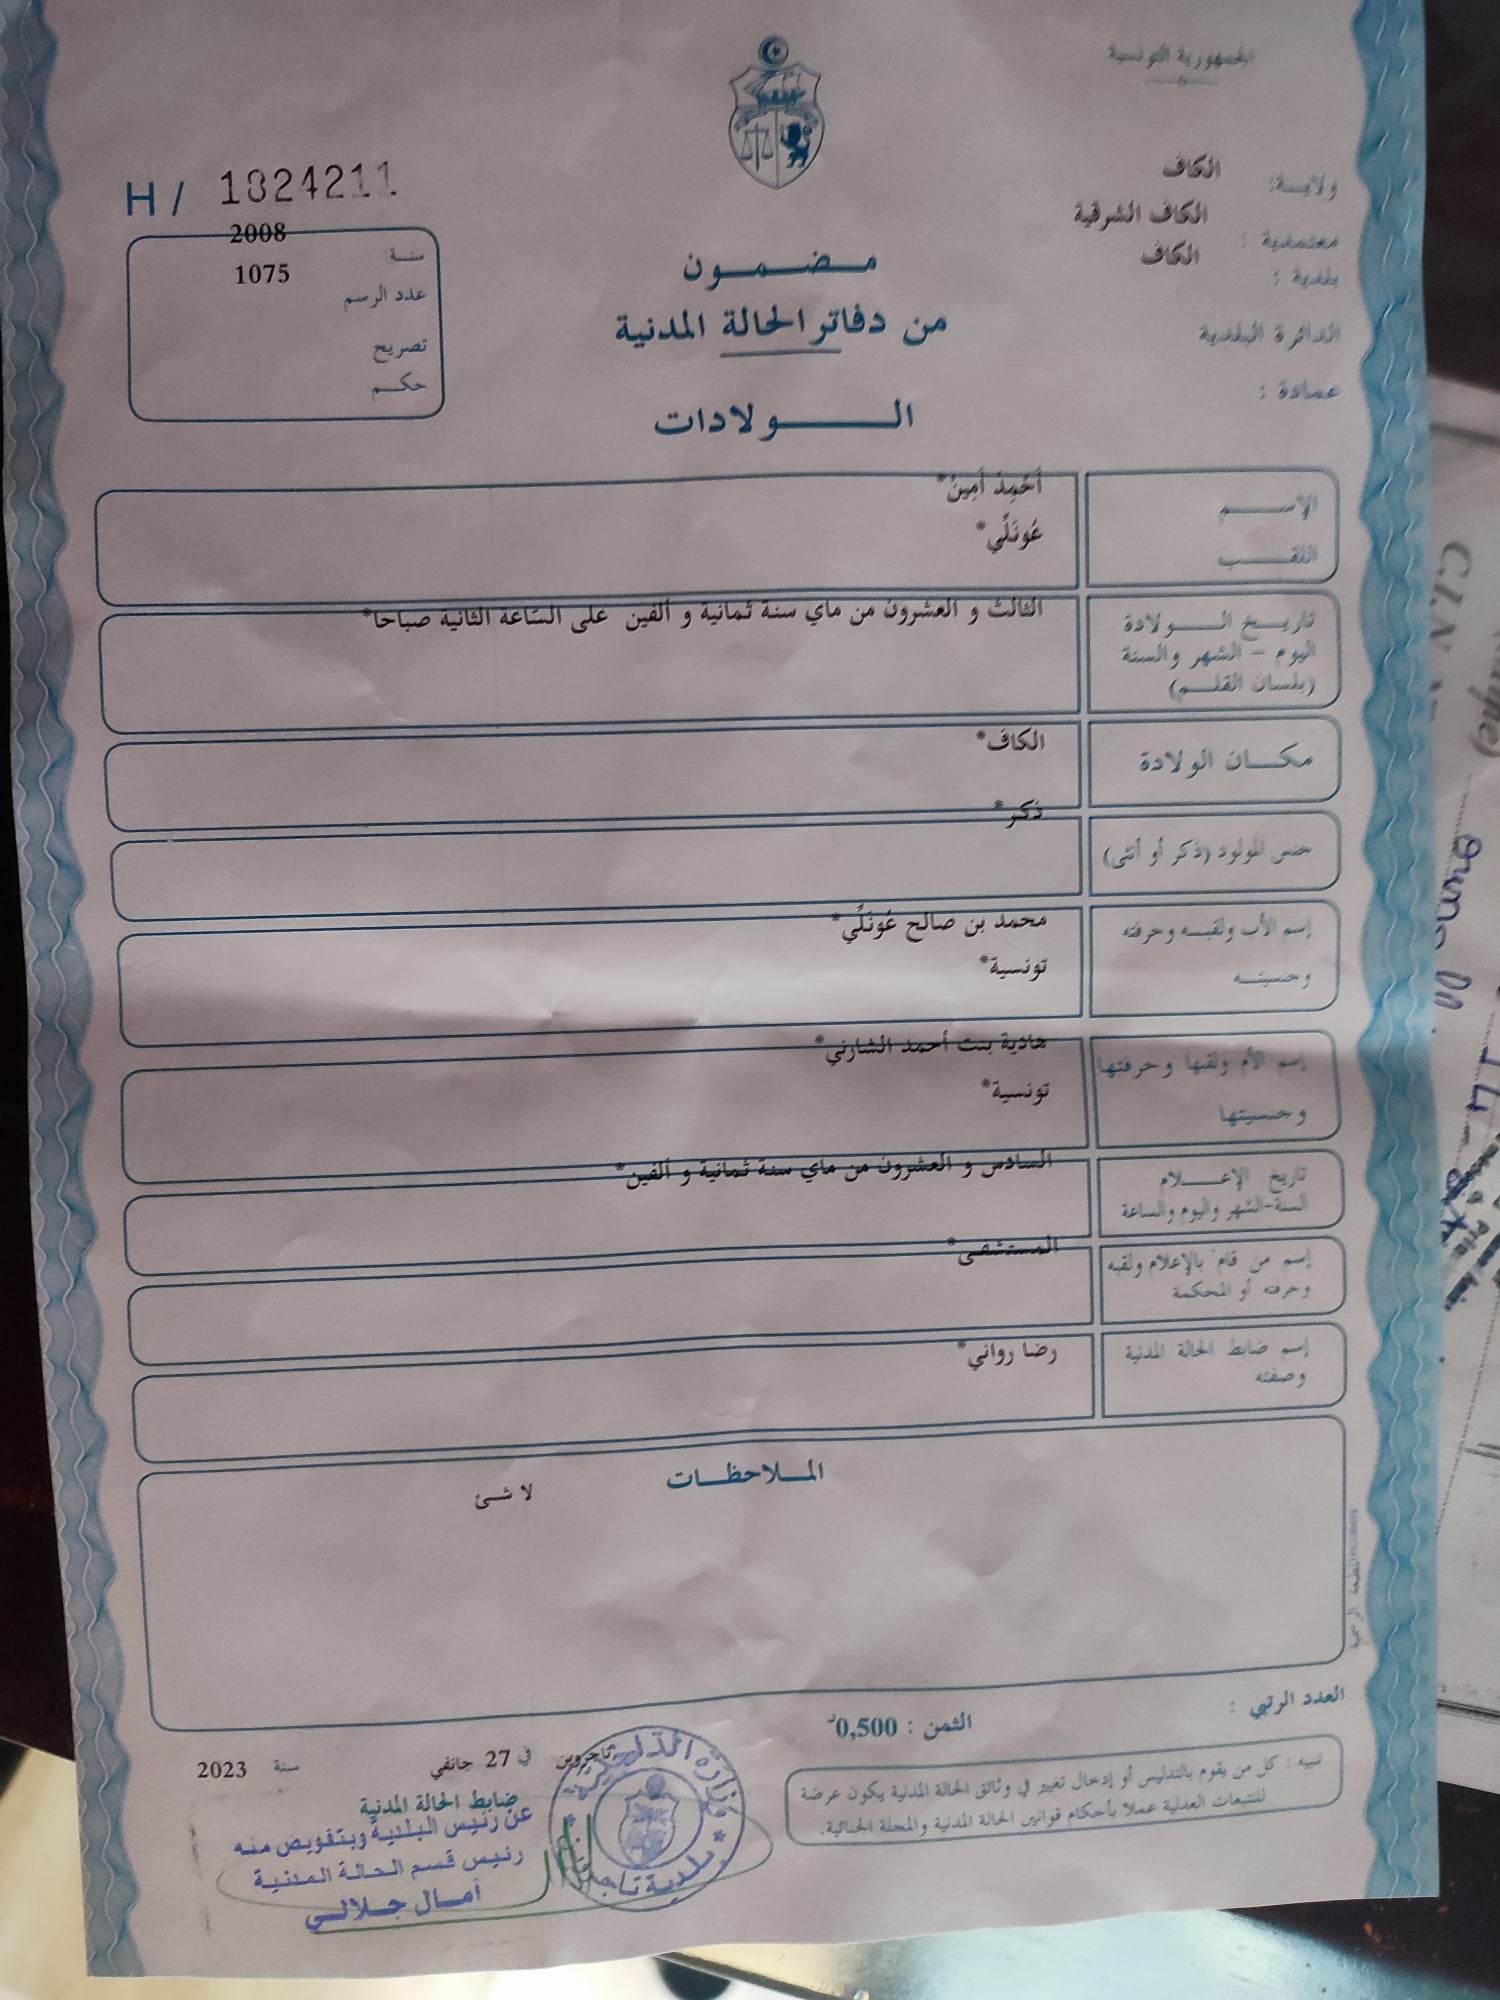 الجمهورية التونسية
ولايــة: الكاف
معتمدية : الكاف الشرقية
بلدية : الكاف
الدائرة البلدية
عمادة :
H / 1824211
سنة 2008
عدد الرسم 1075
تصريح
حكــم
مــضــمــون
من دفاتر الحالة المدنية
الــــولادات
الإســــم أَحْمِدْ أَمِينْ*
اللقــــب عُونَلِّي*
تاريــخ الــــولادة الثالث و العشرون من ماي سنة ثمانية و ألفين على الساعة الثانية صباحا*
اليوم – الشهر والسنة
(بلسان القلــم)
مكــان الولادة الكاف*
جنس المولود (ذكر أو أنثى) ذكر*
إسم الأب ولقبــه وحرفته محمد بن صالح عُونَلِّي*
وجنسيتــه تونسية*
إسم الأم ولقبها وحرفتها هادية بنت أحمد الشارني*
وجنسيتها تونسية*
تاريخ الإعــــلام السادس و العشرون من ماي سنة ثمانية و ألفين*
السنة-الشهر واليوم والساعة
إسم من قام بالإعلام ولقبه المستشفى*
وحرفته أو المحكمة
إسم ضابط الحالة المدنية رضا رواني*
وصفته
المــلاحظــات
لا شئ
المطبعة الرسمية
العدد الرتبي :
الثمن : 0,500د
تنبيه : كل من يقوم بالتدليس أو إدخال تغيير في وثائق الحالة المدنية يكون عرضة
للتتبعات العدلية عملا بأحكام قوانين الحالة المدنية والمجلة الجنائية.
تاجروين في 27 جانفي سنة 2023
ضابط الحالة المدنية
عن رئيس البلدية وبتفويض منه
رئيس قسم الحالة المدنية
أمــال جــلالــي
بلدية تاجروين
C.I.N